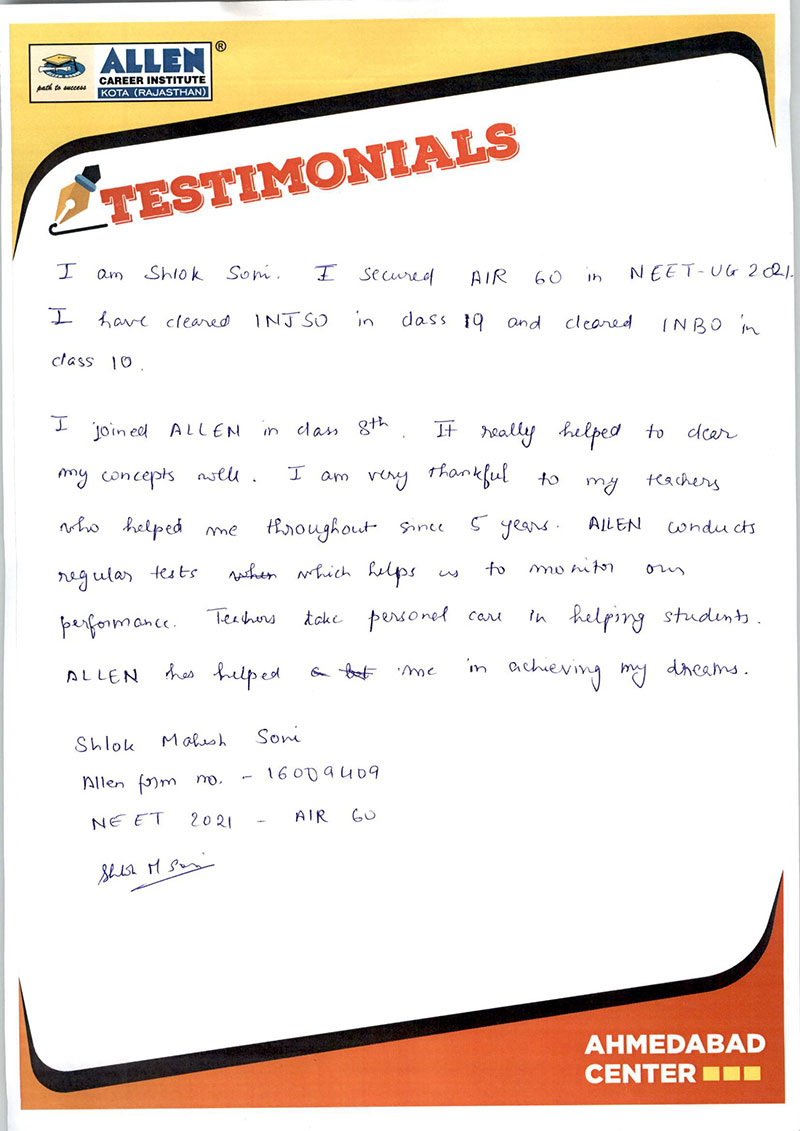 ALLEN®
path to success
CAREER INSTITUTE
KOTA (RAJASTHAN)
TESTIMONIALS
I am Shlok Soni. I secured AIR 60 in NEET-UG 2021.
I have cleared INJSO in class 19 and cleared INBO in
class 10.
I joined ALLEN in class 8th. It really helped to clear
my concepts well. I am very thankful to my teachers
who helped me throughout since 5 years. ALLEN conducts
regular tests when which helps us to monitor our
performance. Teachers take personal care in helping students.
ALLEN has helped me in achieving my dreams.
Shlok Mahesh Soni
Allen form no. - 16009409
NEET 2021 - AIR 60
Shlok M Soni
AHMEDABAD
CENTER